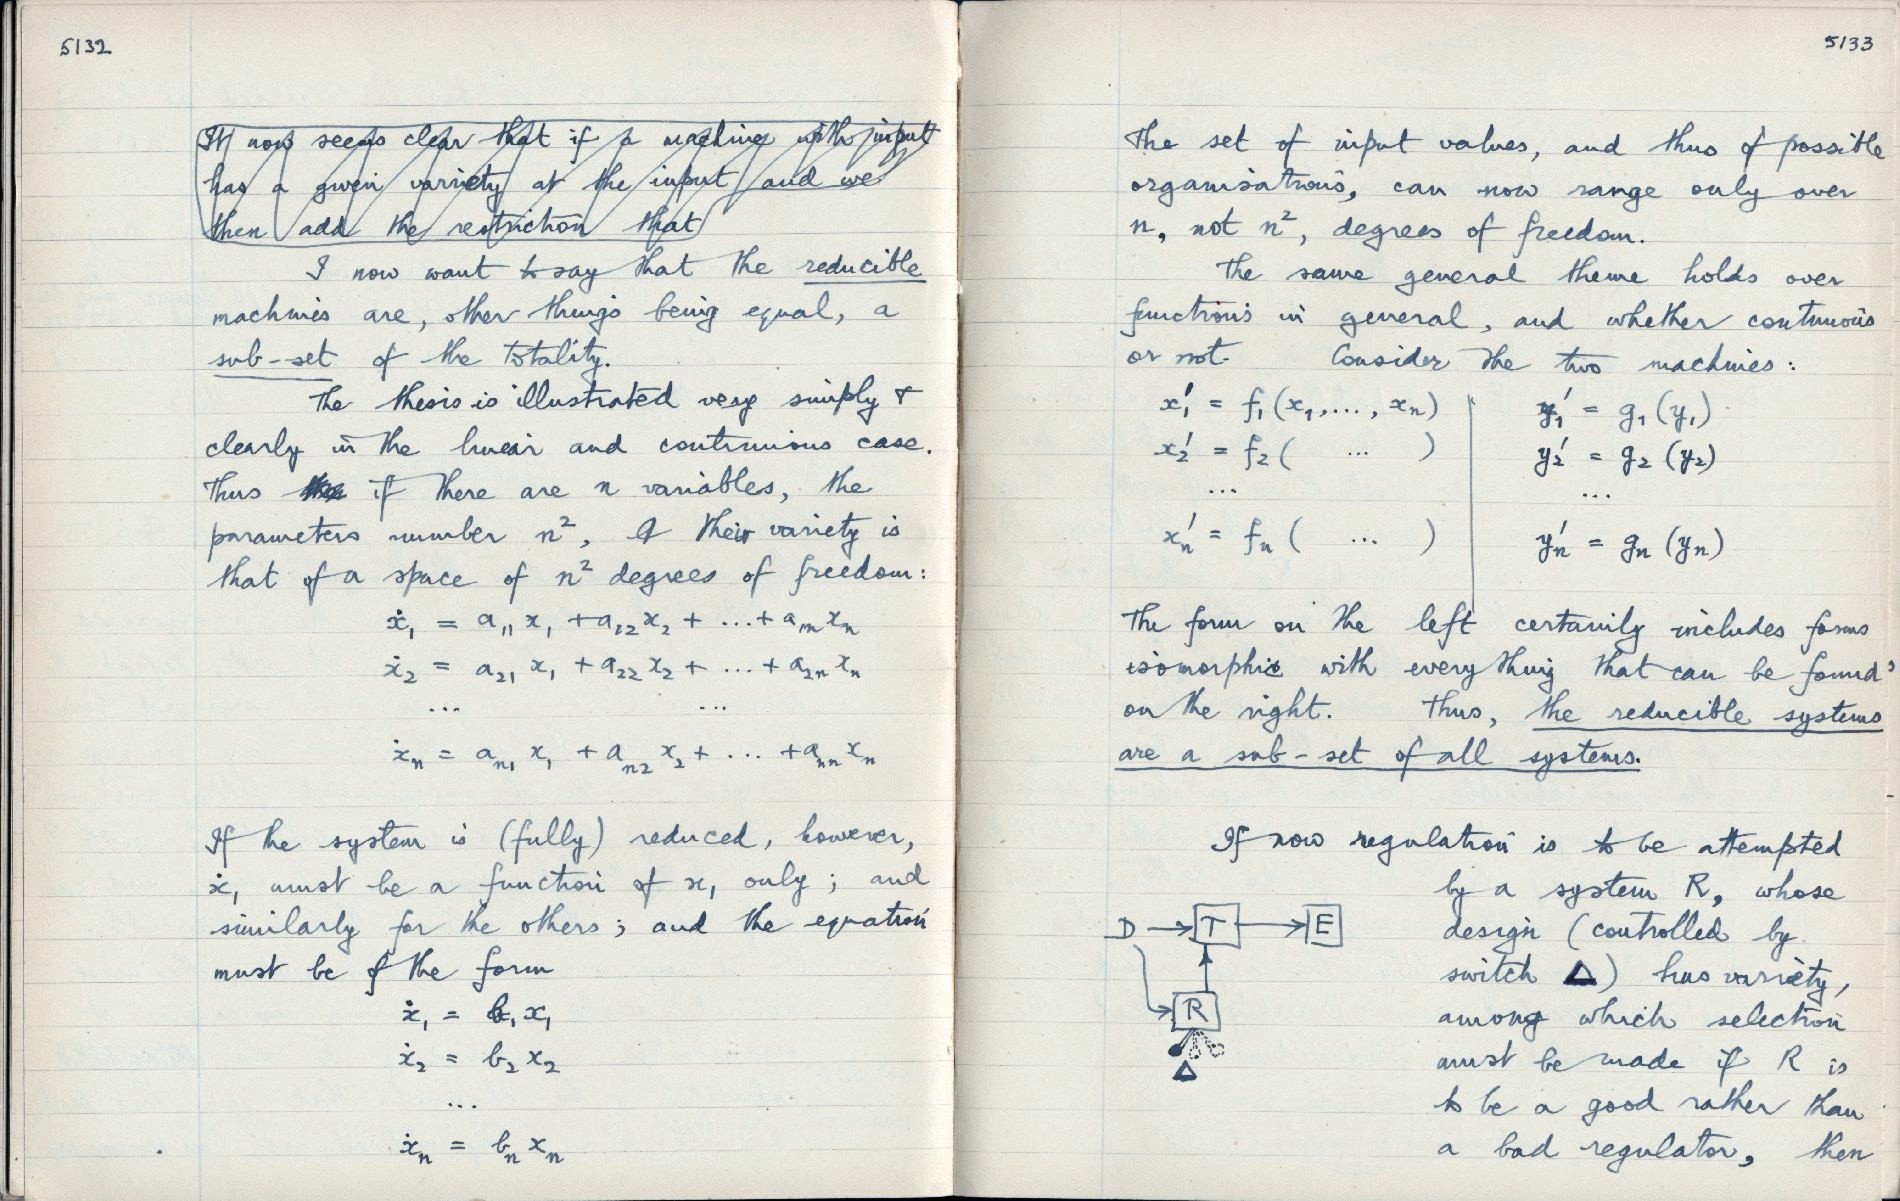 5132
It now seems clear that if a machine with input
has a given variety at the input and we
then add the restriction that
I now want to say that the reducible
machines are, other things being equal, a
sub-set of the totality.
The thesis is illustrated very simply &
clearly in the linear and continuous case.
Thus if there are n variables, the
parameters number n², & their variety is
that of a space of n² degrees of freedom:
ẋ₁ = a₁₁ x₁ + a₁₂ x₂ + ... + a₁ₙ xₙ
ẋ₂ = a₂₁ x₁ + a₂₂ x₂ + ... + a₂ₙ xₙ
... ...
ẋₙ = aₙ₁ x₁ + aₙ₂ x₂ + ... + aₙₙ xₙ
If the system is (fully) reduced, however,
ẋ₁ must be a function of x₁ only; and
similarly for the others; and the equation
must be of the form
ẋ₁ = b₁ x₁
ẋ₂ = b₂ x₂
...
ẋₙ = bₙ xₙ
5133
The set of input values, and thus of possible
organisations, can now range only over
n, not n², degrees of freedom.
The same general theme holds over
functions in general, and whether continuous
or not. Consider the two machines:
x₁′ = f₁(x₁, ..., xₙ) y₁′ = g₁(y₁)
x₂′ = f₂( ... ) y₂′ = g₂(y₂)
... ...
xₙ′ = fₙ( ... ) yₙ′ = gₙ(yₙ)
The form on the left certainly includes forms
isomorphic with everything that can be found
on the right. Thus, the reducible systems
are a sub-set of all systems.
If now regulation is to be attempted
by a system R, whose
design (controlled by
switch Δ) has variety,
among which selection
must be made if R is
to be a good rather than
a bad regulator, then
D → T → E
R
Δ